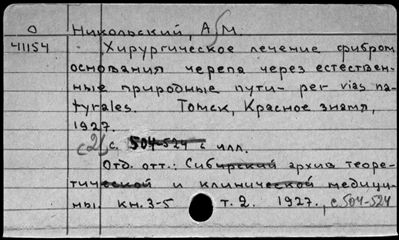 О Никольский, А. М.
41154 Хирургическое лечение фибром
основания черепа через естествен-
ные природные пути- per vias na-
turales. Томск, Красное знамя,
1927.
c21 с. 504-524 с илл.
Отд. отт.: Сибирский архив теоре-
тической и клинической медици-
ны. кн. 3-5 т. 2. 1927., с. 504-524